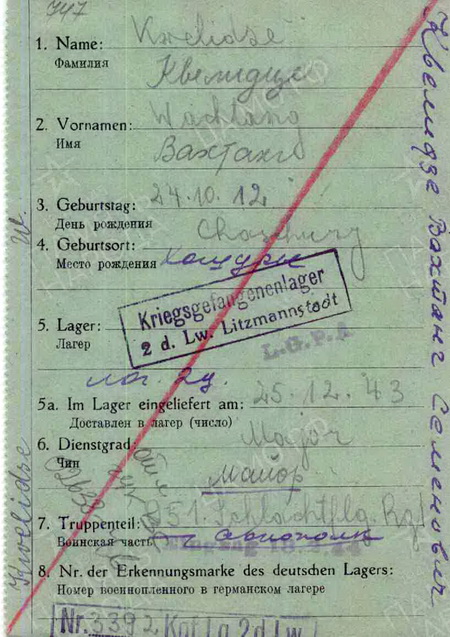 747
1. Name: Kwelidse
Фамилия Квелидзе
2. Vornamen: Wachtang
Имя Вахтанг
3. Geburtstag: 24.10.12.
День рождения
4. Geburtsort:
Место рождения Хашури
5. Lager: Kriegsgefangenenlager
2 d. Lw. Litzmannstadt
Лагер L.G.P.A
лаг. 2д.
5a. Im Lager eingeliefert am: 25.12.43
Доставлен в лагер (число)
6. Dienstgrad: Major
Чин майор
7. Truppenteil: Schlachtflg. Rgt
Воинская часть Авиополк
8. Nr. der Erkennungsmarke des deutschen Lagers:
Номер военнопленного в германском лагере
Nr. 3392 Kgf. Lg. 2 d. Lw.
Kwelidse W.
Квелидзе Вахтанг Семенович